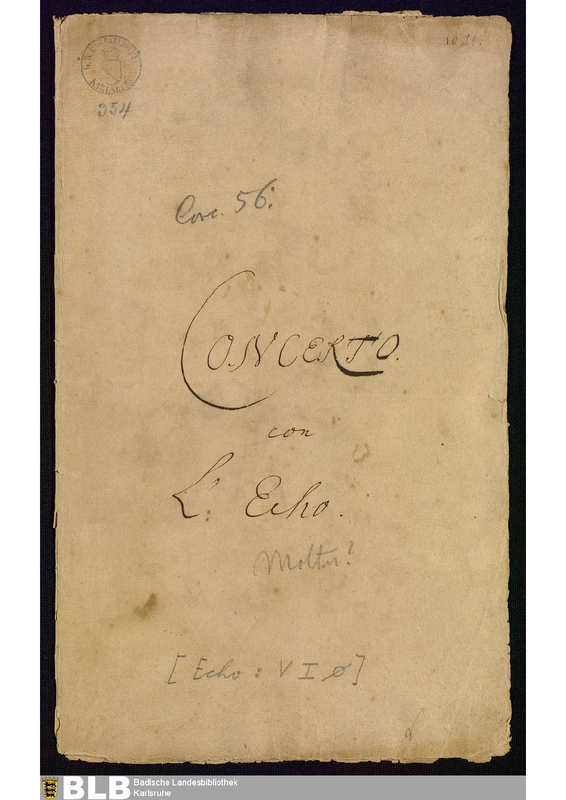 10 21.
KARLSRUHE
354
Conc. 56.
CONCERTO.
con
L'. Echo.
Molter?
[Echo: V I ø]
BLB Badische Landesbibliothek
Karlsruhe